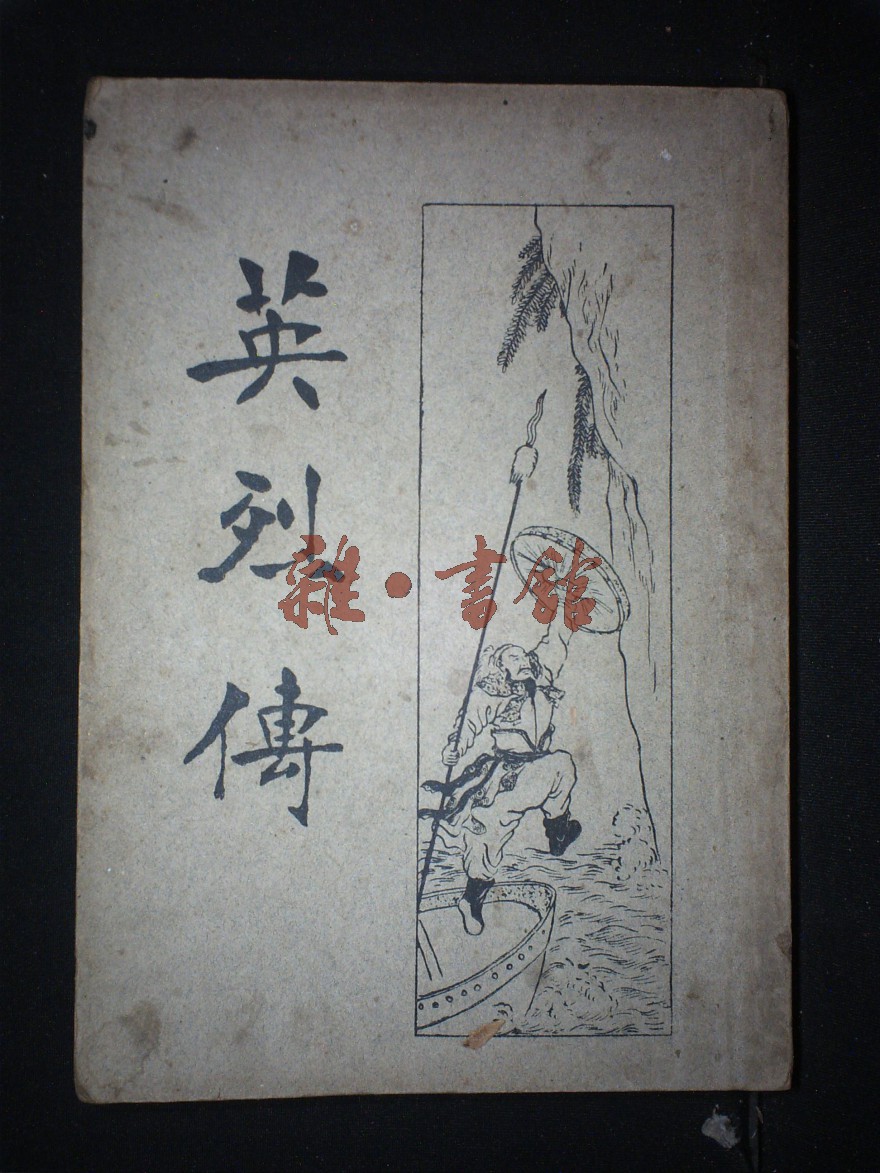 英烈傳
雜·書館